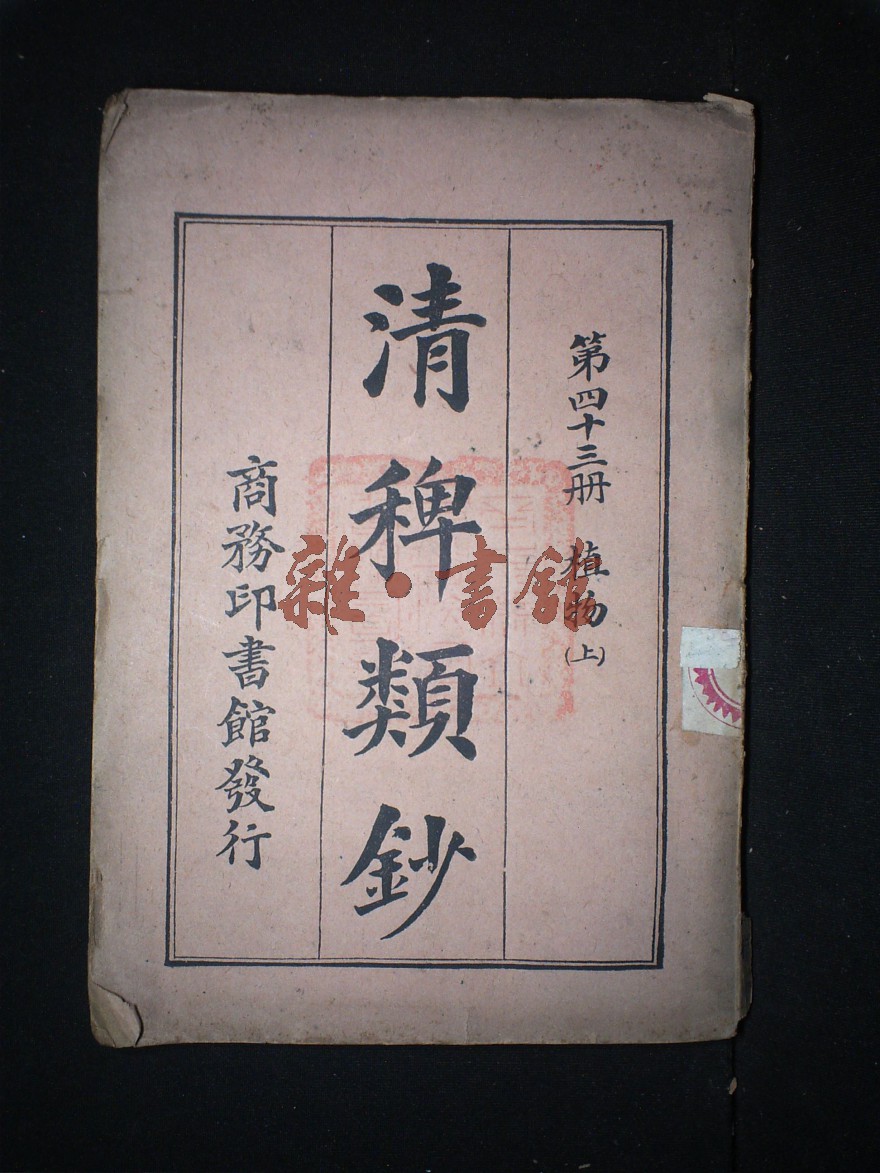 第四十三册 植物(上)
清稗類鈔
商務印書館發行
雜·書館